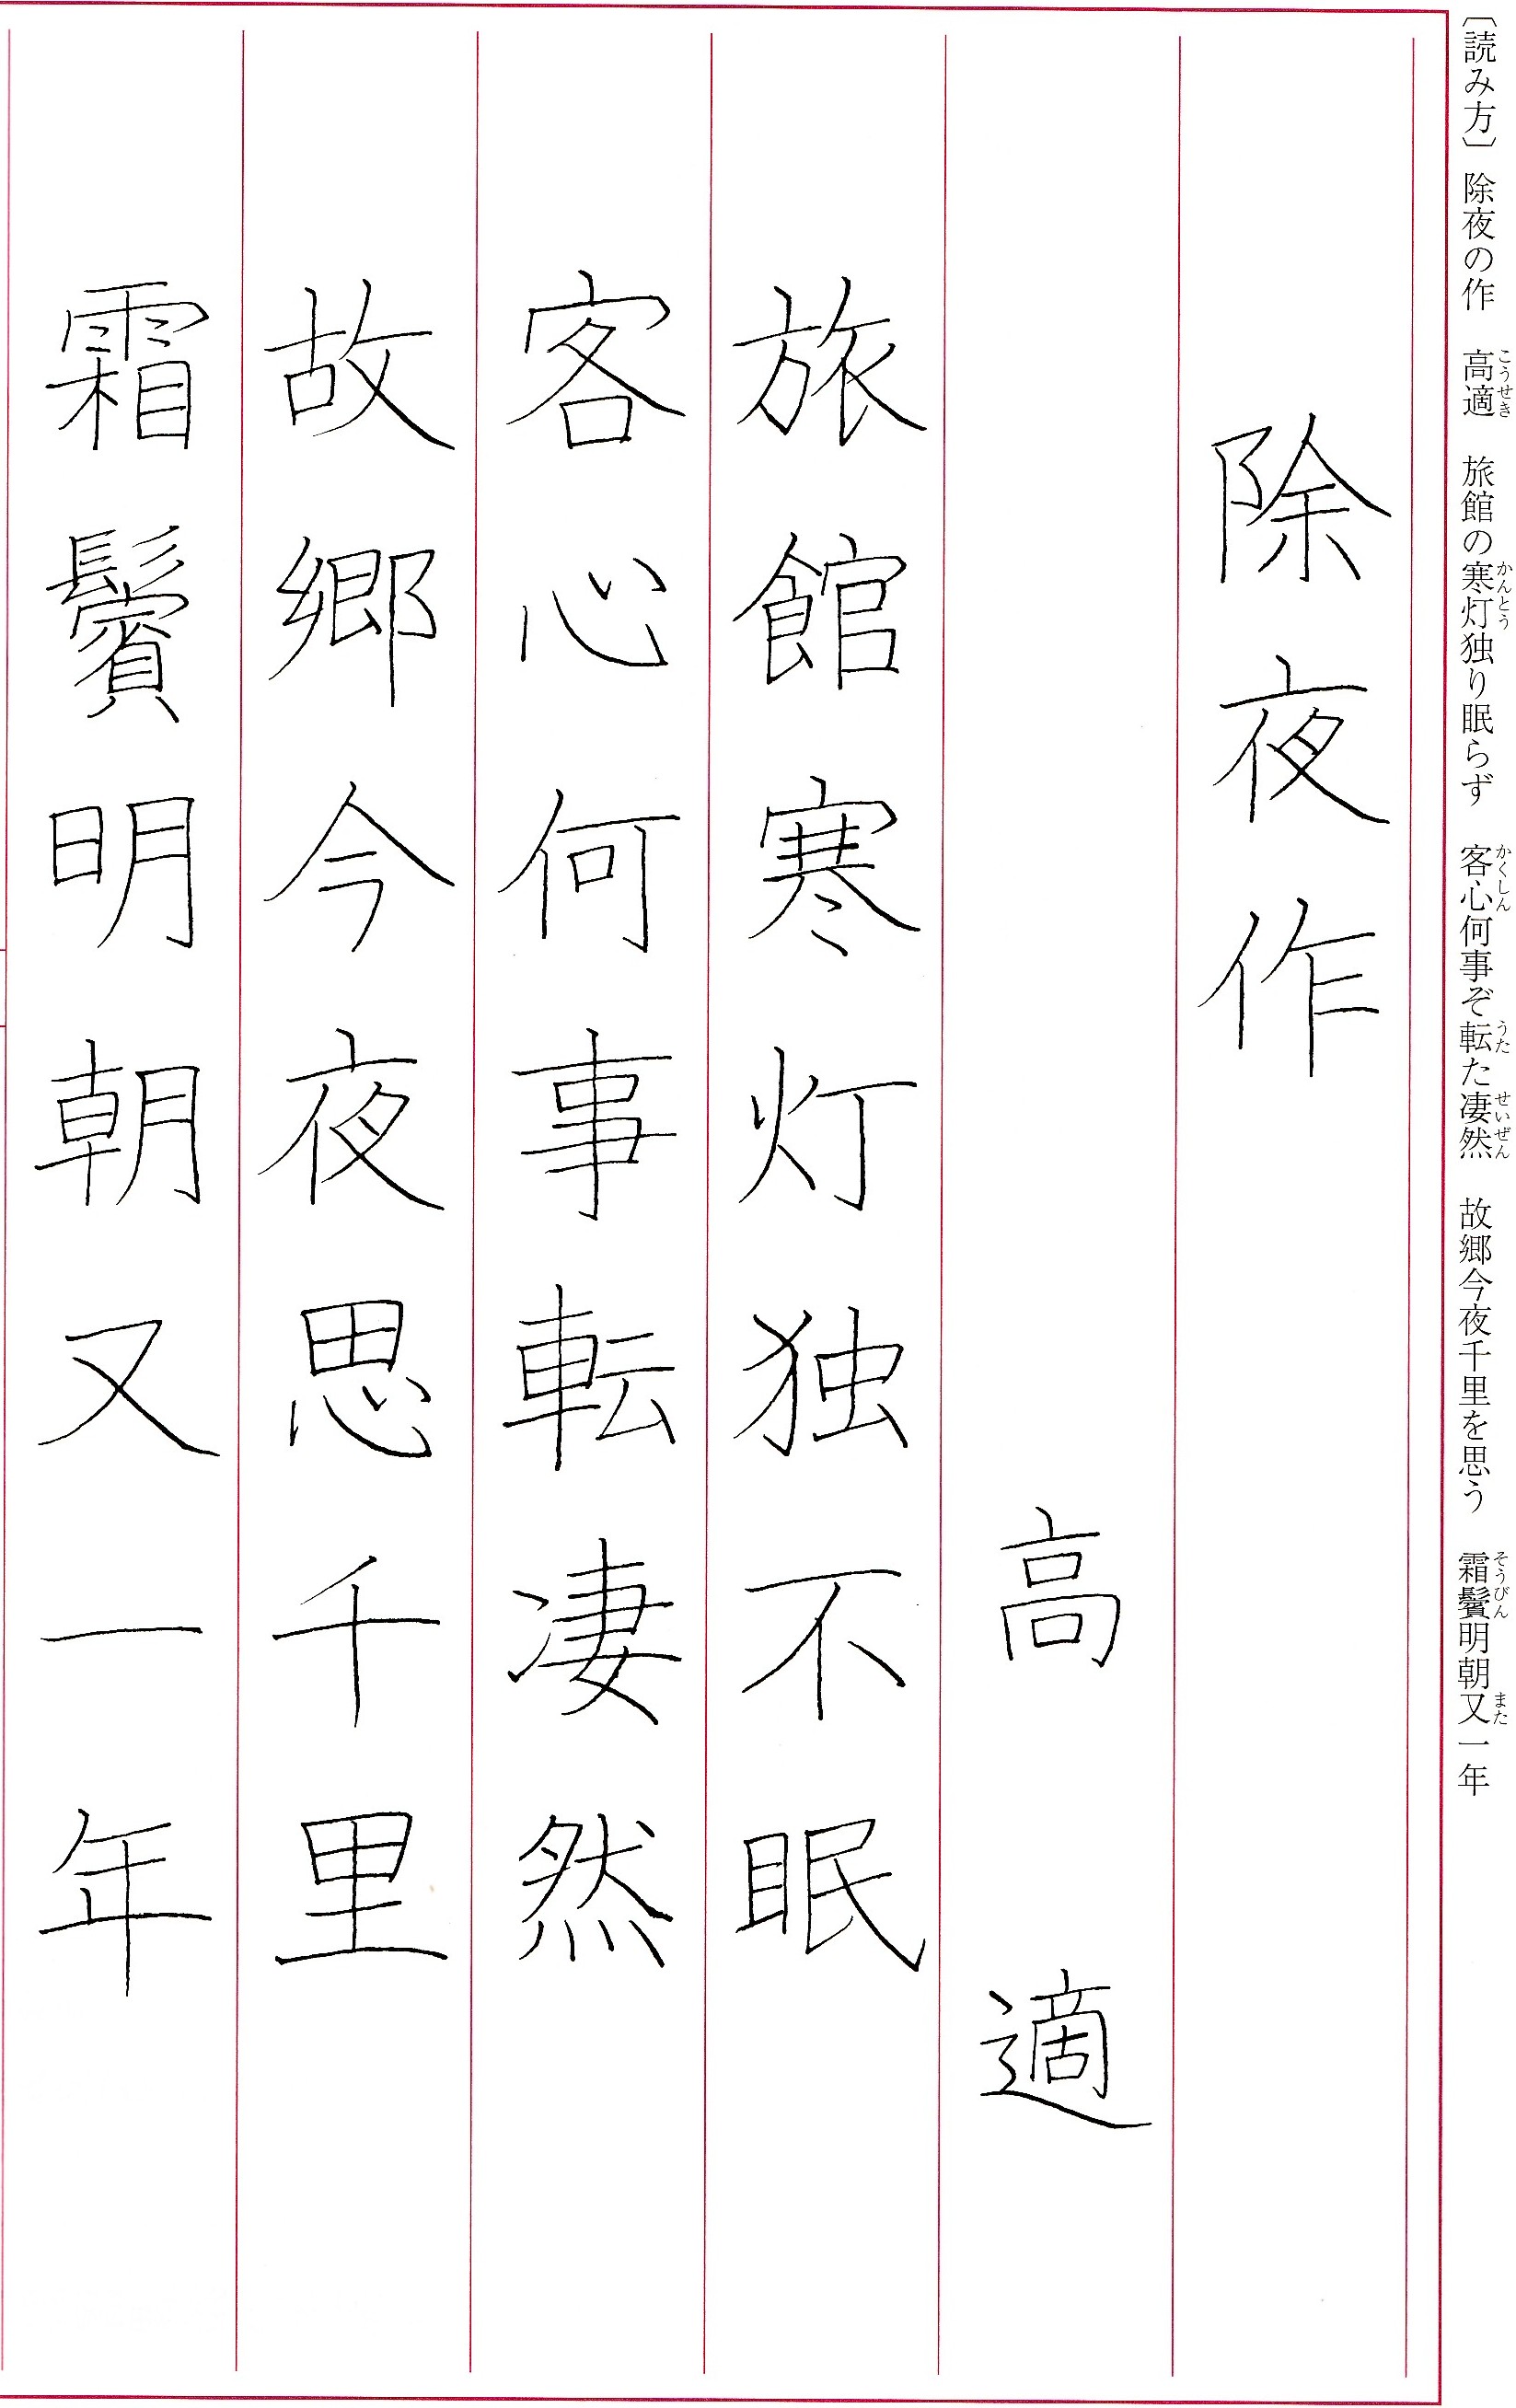 〔読み方〕 除夜の作 高適 旅館の寒灯独り眠らず 客心何事ぞ転た凄然 故郷今夜千里を思う 霜鬢明朝又一年
こうせき かんとう かくしん うた せいぜん そうびん また
除夜作
高適
旅館寒灯独不眠
客心何事転凄然
故郷今夜思千里
霜鬢明朝又一年